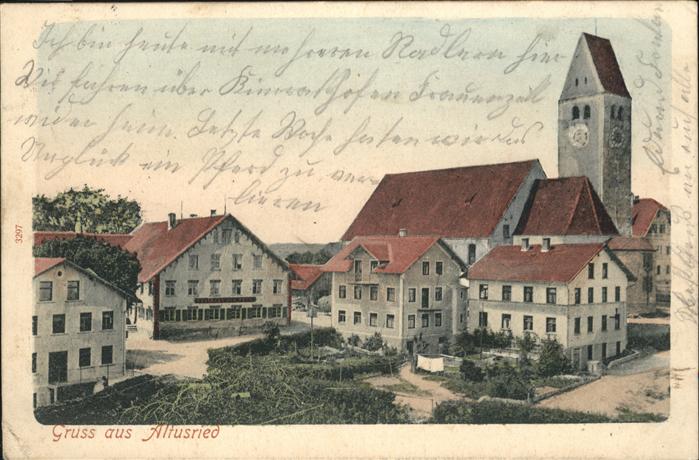 Ich bin heute mit mehreren Radlern hier
Wir fuhren über Kimratshofen Frauenzell
wider heim. Letzte Woche hatten wir das
Unglück ein Pferd zu ver-
lieren
3297
Gruss aus Altusried